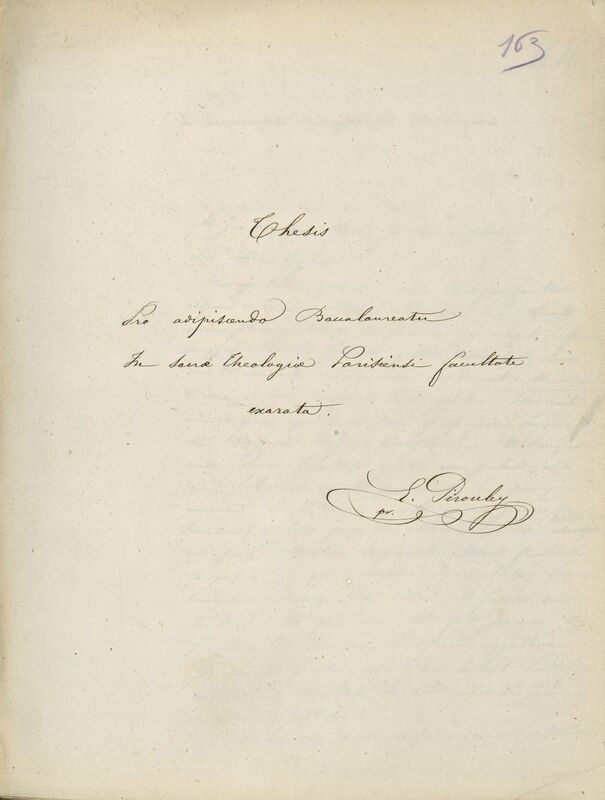 163
Thesis
Pro adipiscendo Baccalaureatu
In sacræ Theologiæ Parisiensi facultate
exarata.
E. Pirouley
pr.